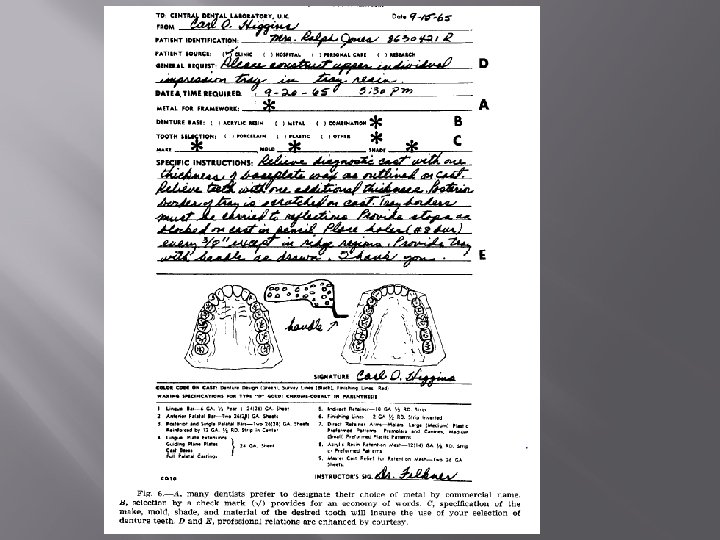 TO: CENTRAL DENTAL LABORATORY, U.K. Date 9-15-65
FROM Carl O. Higgins
PATIENT IDENTIFICATION: Mrs. Ralph Jones 8630421 R
PATIENT SOURCE: (✓) CLINIC ( ) HOSPITAL ( ) PERSONAL CARE ( ) RESEARCH
GENERAL REQUEST: Please construct upper individual D
impression tray in tray resin.
DATE & TIME REQUIRED: 9-20-65 3:30 PM
METAL FOR FRAMEWORK: * A
DENTURE BASE: ( ) ACRYLIC RESIN ( ) METAL ( ) COMBINATION * B
TOOTH SELECTION: ( ) PORCELAIN ( ) PLASTIC ( ) OTHER * C
MAKE * MOLD * SHADE *
SPECIFIC INSTRUCTIONS: Relieve diagnostic cast with one
thickness of baseplate wax as outlined on cast.
Relieve teeth with one additional thickness. Posterior
border of tray is scratched on cast. Tray borders
must be carried to reflections. Provide stops as
blocked on cast in pencil. Place holes (#8 bur)
every 3/8" except in ridge regions. Provide tray
with handle as drawn. Thank you. E
handle
SIGNATURE Carl O. Higgins
COLOR CODE ON CAST: Denture Design (Green), Survey Lines (Black), Finishing Lines Red)
WAXING SPECIFICATIONS FOR TYPE "D" GOLD; CHROME-COBALT IN PARENTHESIS
1 Lingual Bar—6 GA. ½ Pear 1 24(28) GA. Sheet
2 Anterior Palatal Bar—Two 26(28) GA. Sheets
3 Posterior and Single Palatal Bars—Two 26(28) GA. Sheets
Reinforced by 12 GA. ½ RD. Strip in Center
4 Lingual Plate Extensions
Guiding Plane Plates
Cast Bases
Full Palatal Castings
24 GA. Sheet
5. Indirect Retainer—10 GA ½ RD. Strip
6. Finishing Lines GA ½ RD. Strip Inverted
7. Direct Retainer Arms—Molars Large (Medium) Plastic
Preformed Patterns. Premolars and Canines, Medium
(Small) Preformed Plastic Patterns
8. Acrylic Resin Retention Mesh—12(14) GA ½ RD. Strip
or Preformed Patterns
9. Master Cast Relief for Retention Mesh—Two 26 GA
Sheets.
INSTRUCTOR'S SIG. Dr. Felkner
Fig. 6.—A, many dentists prefer to designate their choice of metal by commercial name.
B, selection by a check mark (√) provides for an economy of words. C, specification of the
make, mold, shade, and material of the desired tooth will insure the use of your selection of
denture teeth. D and E, professional relations are enhanced by courtesy.